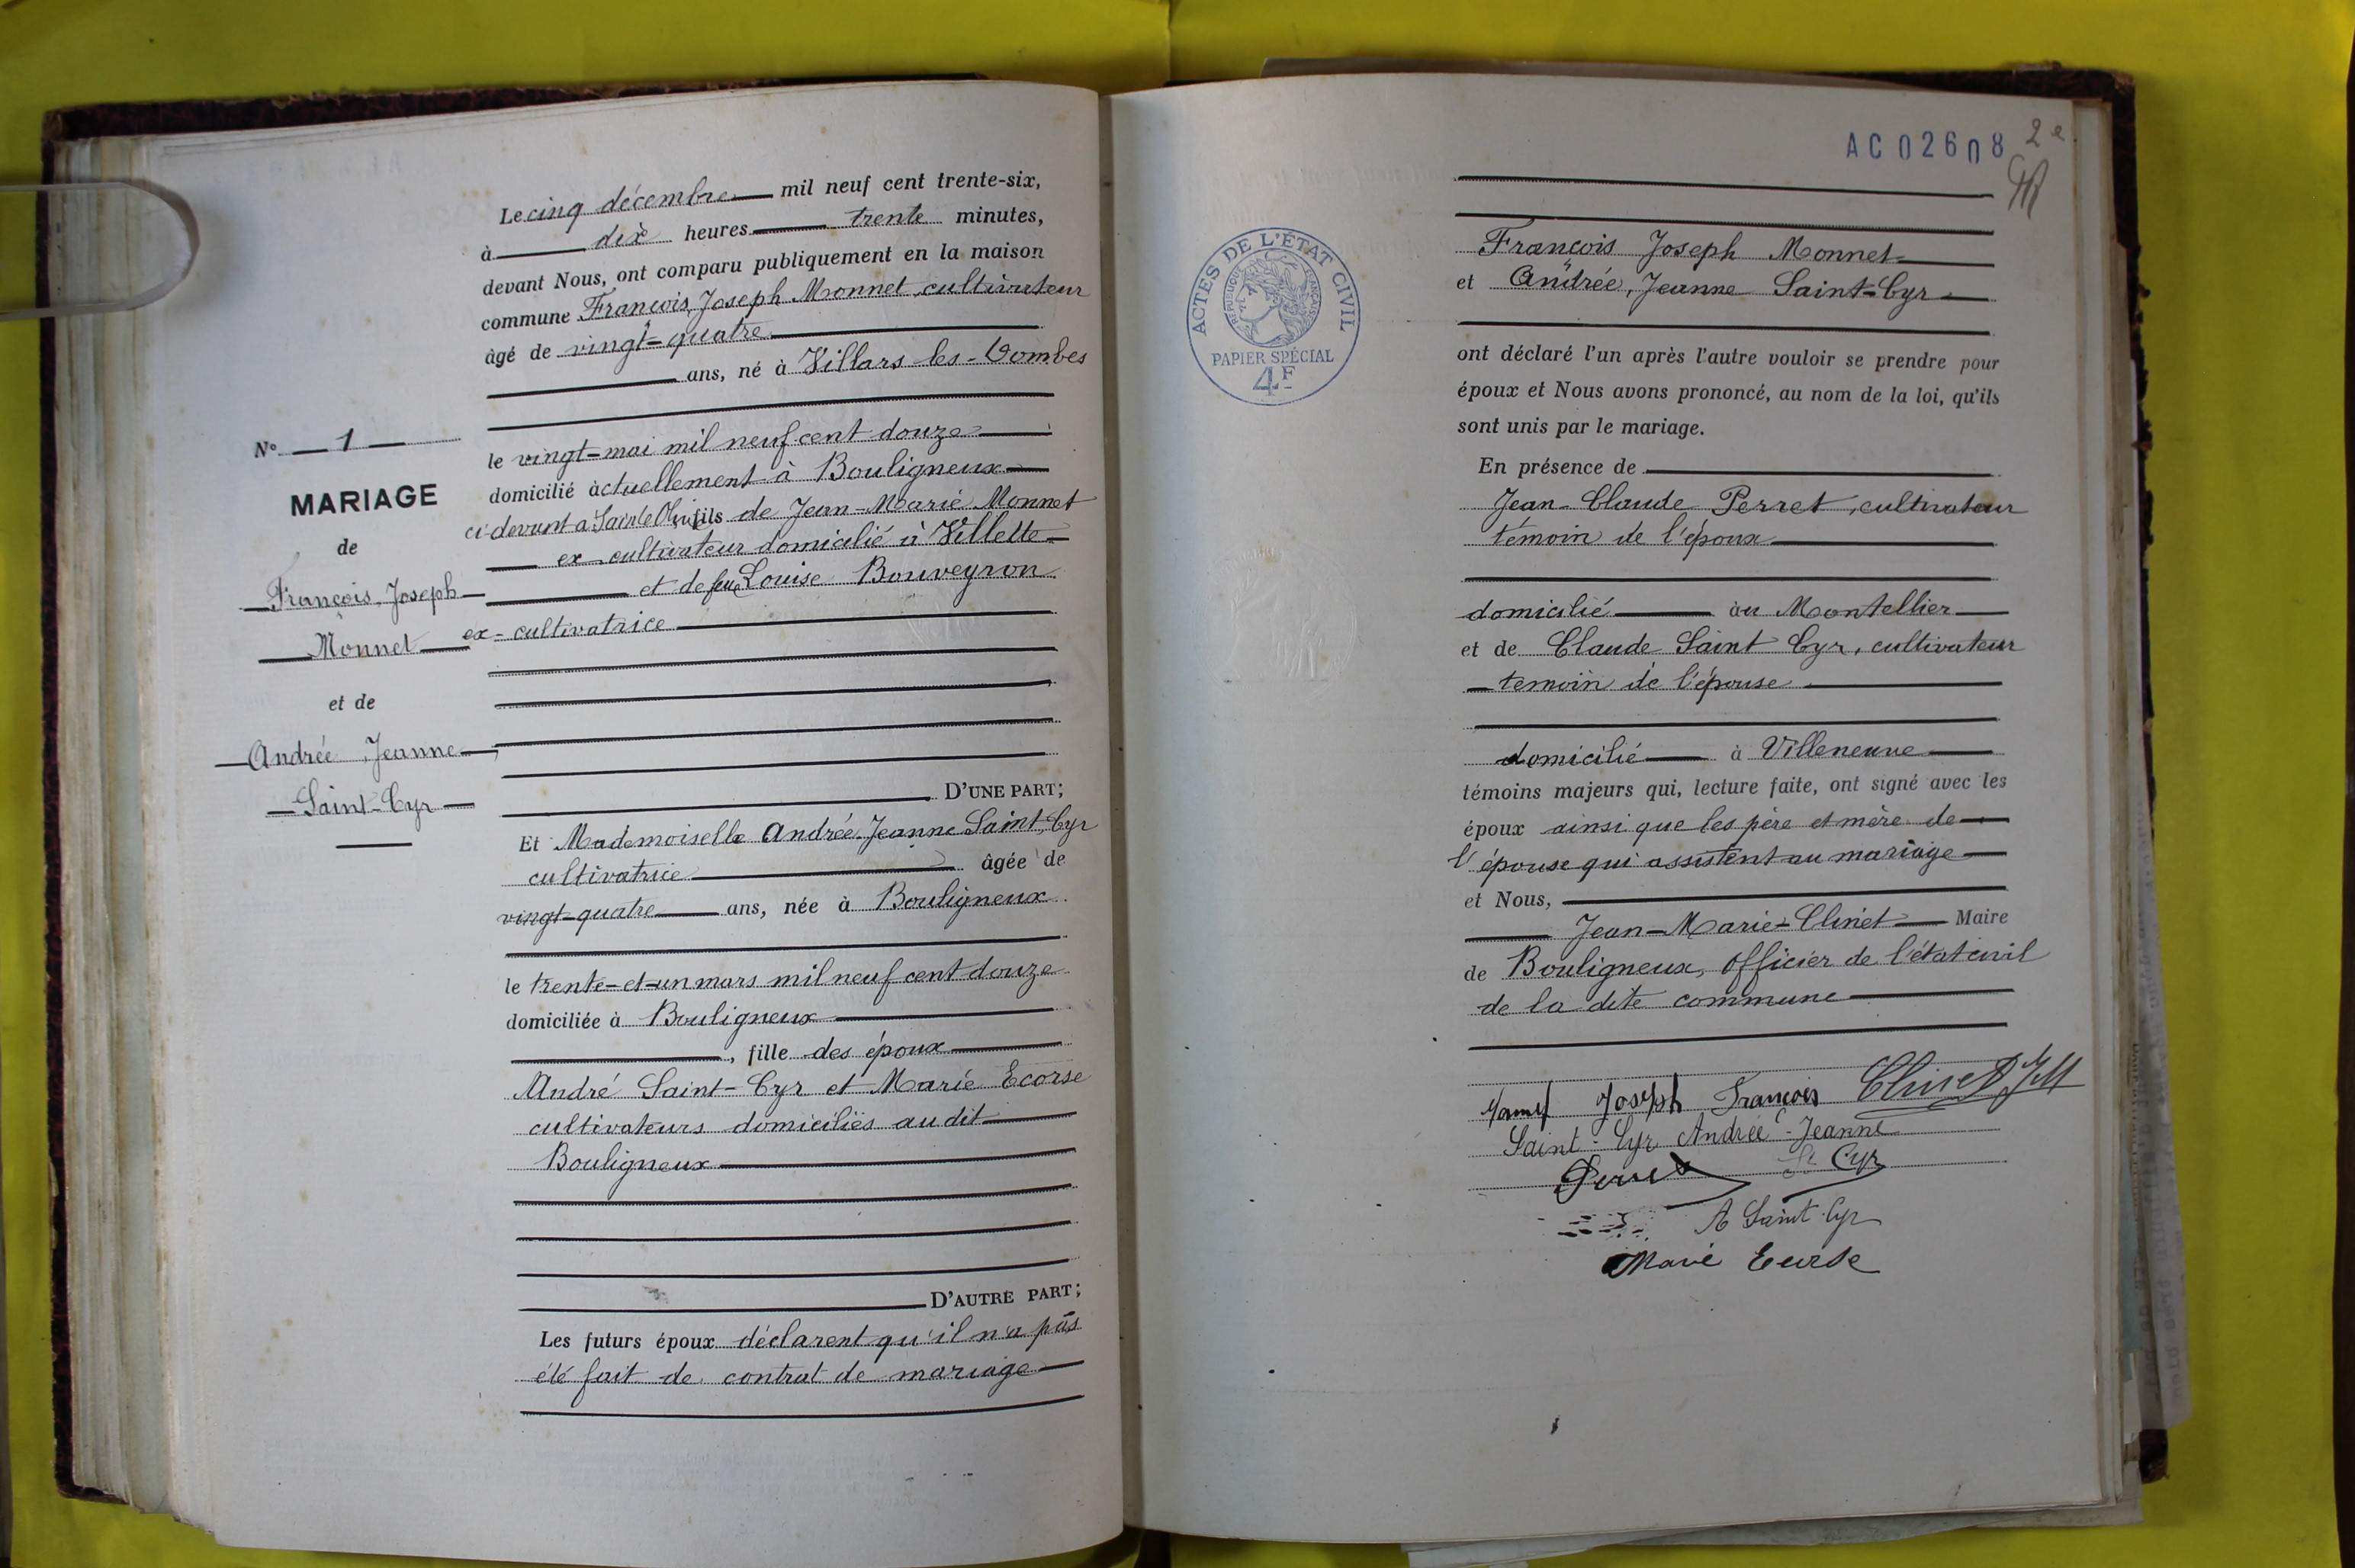 Le cinq décembre mil neuf cent trente-six,
à dix heures trente minutes,
devant Nous, ont comparu publiquement en la maison
commune François, Joseph Monnet, cultivateur
âgé de vingt-quatre
ans, né à Villars-les-Dombes
le vingt-mai mil neuf cent douze
domicilié actuellement à Bouligneux
ci-devant à Sainte Olive fils de Jean-Marie Monnet
ex-cultivateur domicilié à Villette
et de feue Louise Bouveyron
ex-cultivatrice
D'UNE PART;
Et Mademoiselle Andrée-Jeanne Saint-Cyr
cultivatrice âgée de
vingt-quatre ans, née à Bouligneux
le trente-et-un mars mil neuf cent douze
domiciliée à Bouligneux
, fille des époux
André Saint-Cyr et Marie Ecorse
cultivateurs domiciliés au dit
Bouligneux
D'AUTRE PART;
Les futurs époux déclarent qu'il n'a pas
été fait de contrat de mariage
N° 1
MARIAGE
de
François, Joseph
Monnet
et de
Andrée, Jeanne
Saint-Cyr
AC 02608
2e
ACTES DE L'ÉTAT CIVIL
RÉPUBLIQUE FRANÇAISE
PAPIER SPÉCIAL
4F
François Joseph Monnet
et Andrée, Jeanne Saint-Cyr
ont déclaré l'un après l'autre vouloir se prendre pour
époux et Nous avons prononcé, au nom de la loi, qu'ils
sont unis par le mariage.
En présence de
Jean-Claude Perret, cultivateur
témoin de l'époux
domicilié au Montellier
et de Claude Saint Cyr, cultivateur
temoin de l'épouse
domicilié à Villeneuve
témoins majeurs qui, lecture faite, ont signé avec les
époux ainsi que les père et mère de
l'épouse qui assistent au mariage
et Nous,
Jean-Marie-Clinet Maire
de Bouligneux, officier de l'état civil
de la dite commune
Joseph François Clinet JM
Saint-Cyr Andrée-Jeanne
Perret St Cyr
A Saint-Cyr
Marie Ecorse